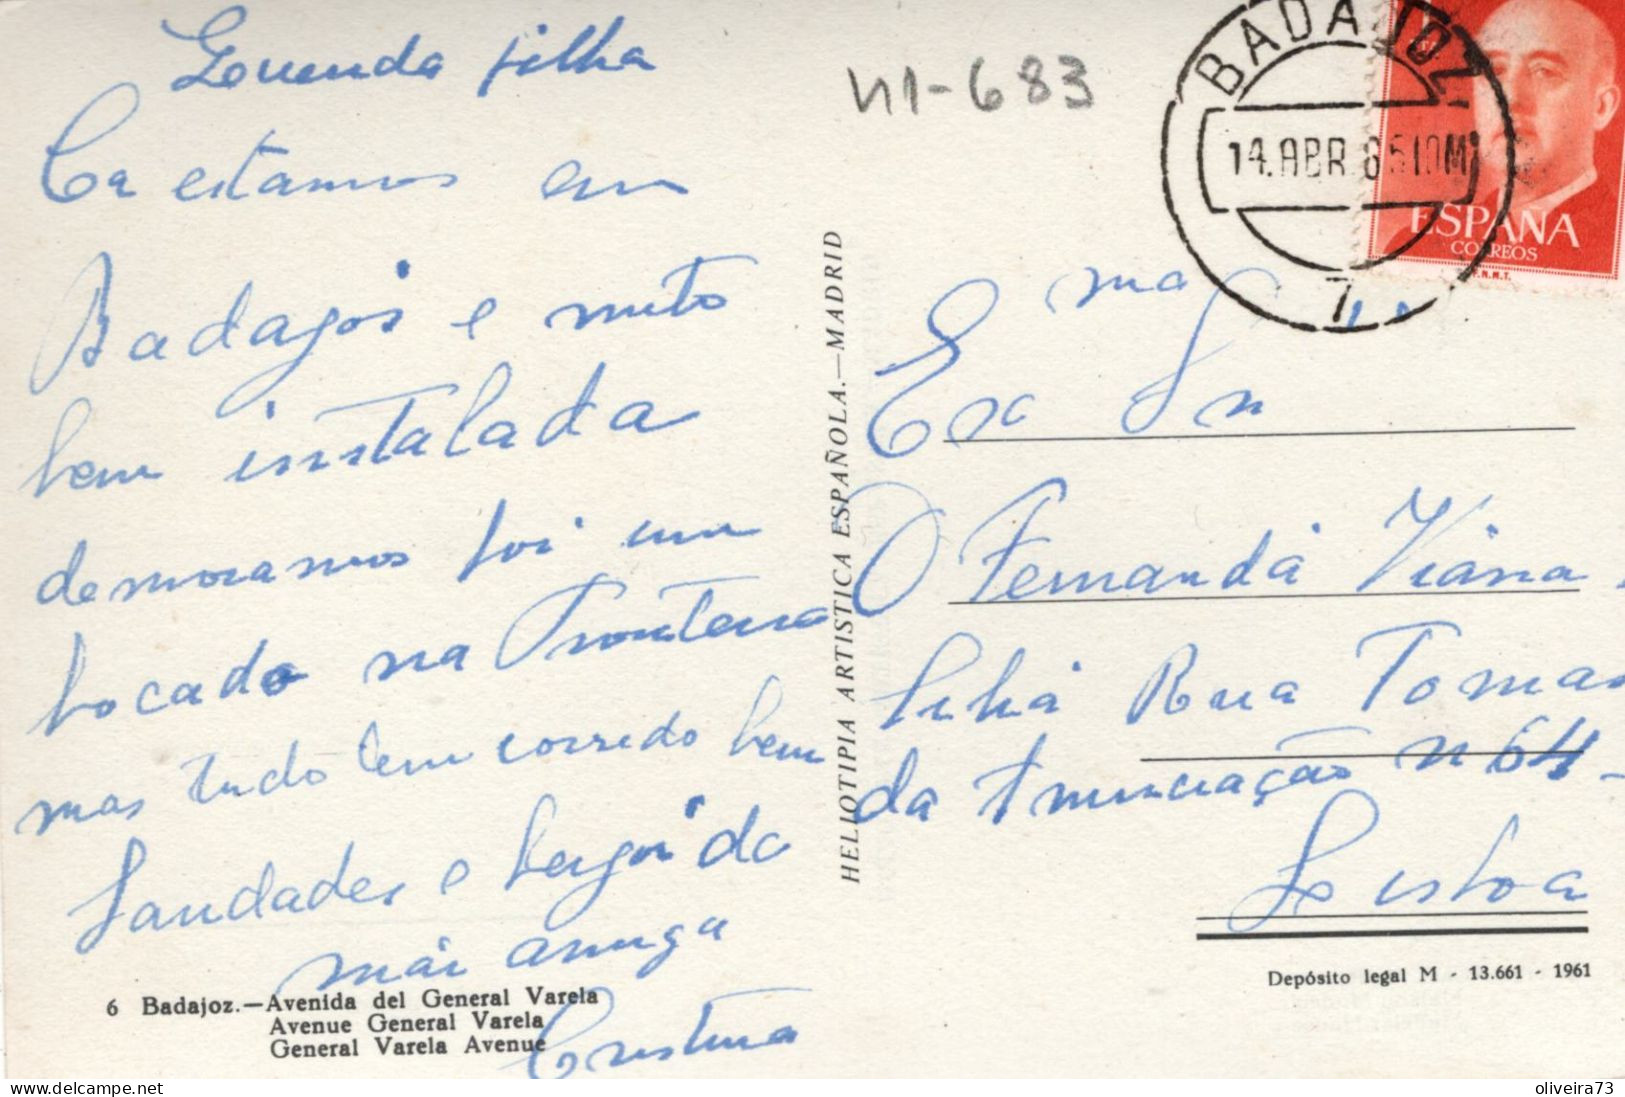 filha
Ca estamos em
Badajós e muto
bem instalada
demoramos foi um
bocado na Fronteira
mas tudo tem corrido bem
Saudades e beijos da
mãi amiga
Cristina
6 Badajoz.—Avenida del General Varela
Avenue General Varela
General Varela Avenue
HELIOTIPIA ARTISTICA ESPAÑOLA.—MADRID
41-683
BADAJOZ
14.ABR.6510M
7
ESPAÑA
CORREOS
F.N.M.T.
Exma Sn
Fernanda Viana
Rua Tomas
da Anunciação n 64-
Lisboa
Depósito legal M - 13.661 - 1961
oliveira73